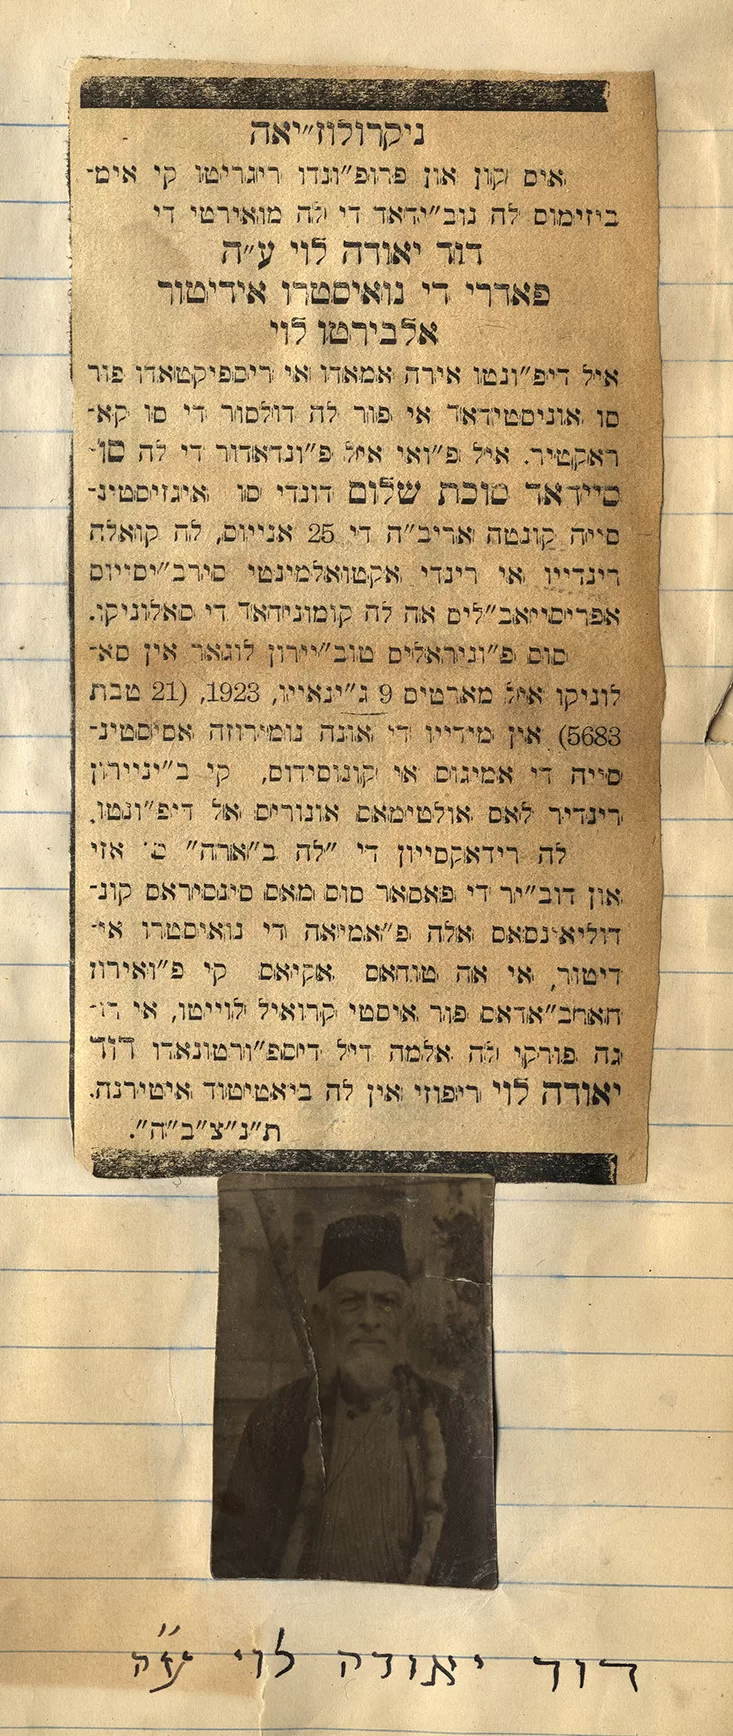 ניקרולוז״יאה
איס קון און פרופ״ונדו ריגריטו קי איט-
ביזימוס לה נוב״ידאד די לה מואירטי די
דוד יאודה לוי ע״ה
פאדרי די נואיסטרו אידיטור
אלבירטו לוי
איל דיפ״ונטו אירה אמאדו אי ריספיקטאדו פור
סו אוניסטידאד אי פור לה דולסור די סו קא-
ראקטיר. איל פ״ואי איל פ״ונדאדור די לה סו-
סיידאד סוכת שלום דונדי סו איגזיסטינ-
סייה קונטה אריב״ה די 25 אנייוס, לה קואלה
רינדייו אי רינדי אקטואלמינטי סירב״יסייוס
אפריסייאב״ליס אה לה קומונידאד די סאלוניקו.
סוס פ״וניראליס טוב״יירון לוגאר אין סא-
לוניקו איל מארטיס 9 ג״ינאייו, 1923, (21 טבת
5683) אין מידייו די אונה נומירוזה אסיסטינ-
סייה די אמיגוס אי קונוסידוס, קי ב״יניירון
רינדיר לאס אולטימאס אונוריס אל דיפ״ונטו.
לה רידאקסייון די ״לה ב״ארה״ אזי
און דוב״יר די פאסאר סוס מאס סינסיראס קונ-
דוליאנסאס אלה פ״אמיאה די נואיסטרו אי-
דיטור, אי אה טודאס אקיאס קי פ״ואירון
פור איסטי קרואיל לוייטו, אי רו-
גה פורקי לה אלמה דיל דיספ״ורטונאדו דוד
יאודה לוי ריפוזי אין לה ביאטיטוד איטירנה.
ת״נ״צ״ב״ה״.
דוד יאודה לוי ע״ה